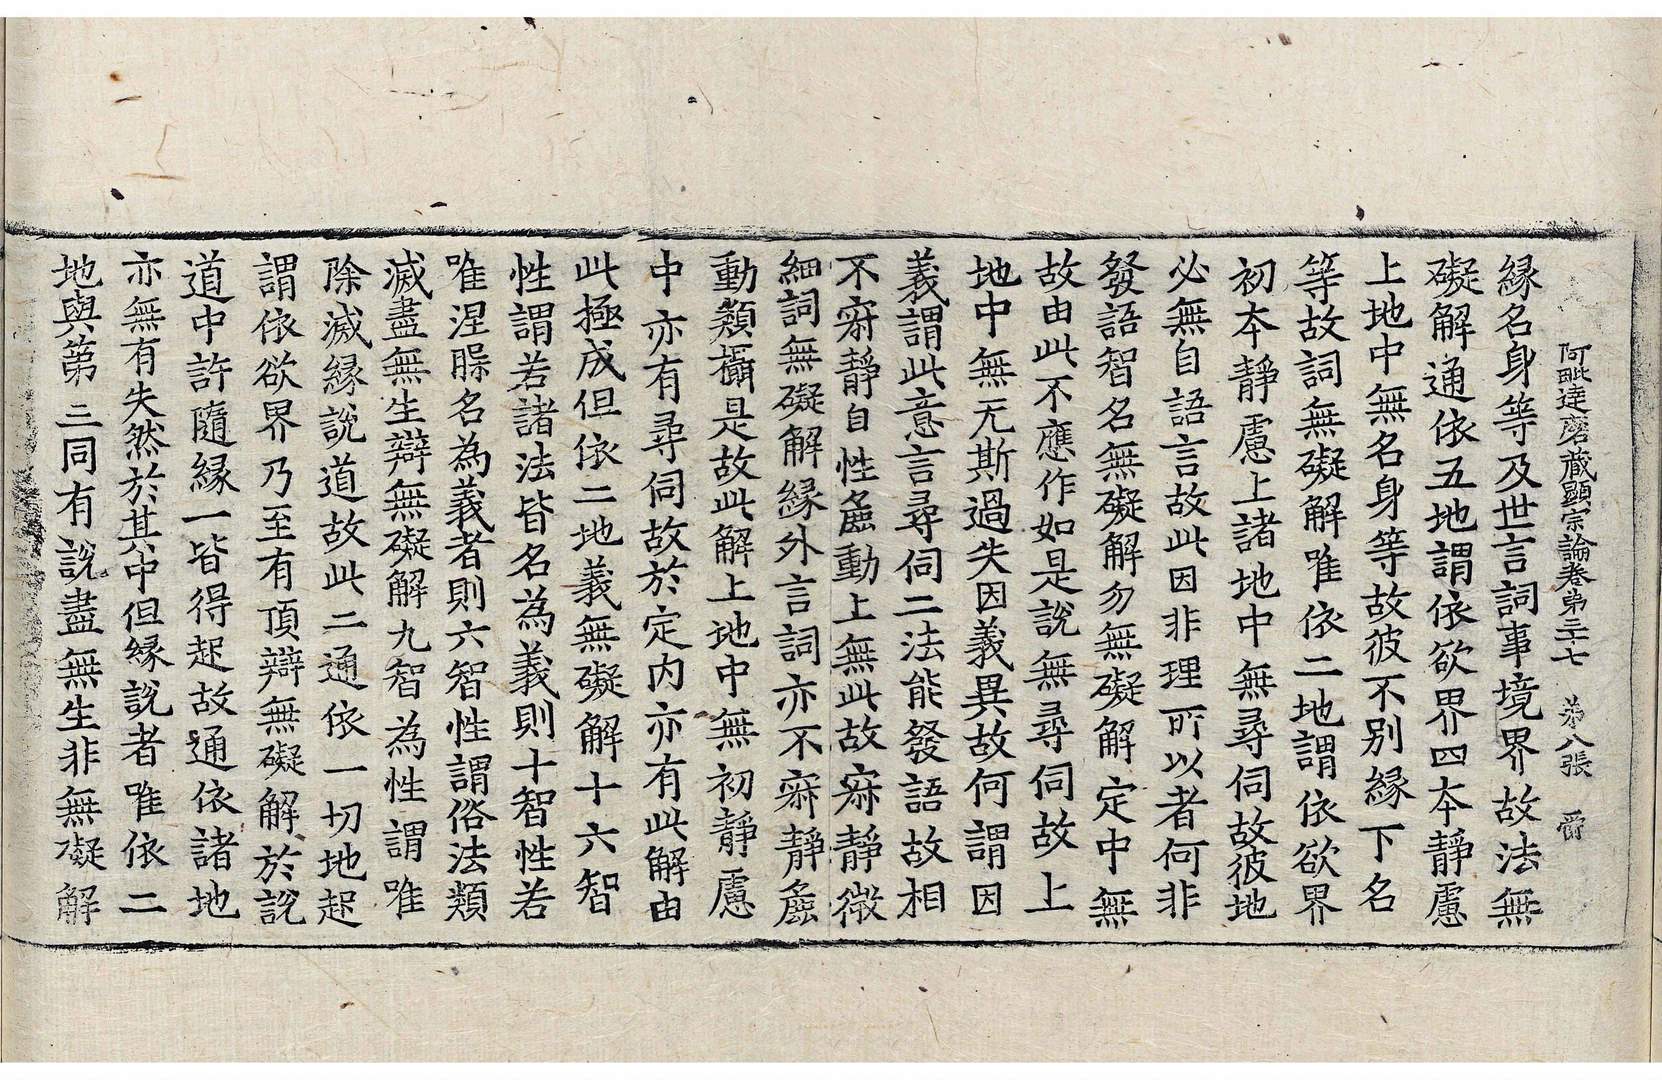 阿毗達磨藏顯宗論卷第三十七 第八張 爵
緣名身等及世言詞事境界故法無
礙解通依五地謂依欲界四本靜慮
上地中無名身等故彼不別緣下名
等故詞無礙解唯依二地謂依欲界
初本靜慮上諸地中無尋伺故彼地
必無自語言故此因非理所以者何非
發語智名無礙解勿無礙解定中無
故由此不應作如是說無尋伺故上
地中無无斯過失因義異故何謂因
義謂此意言尋伺二法能發語故相
不寂靜自性麁動上無此故寂靜微
細詞無礙解緣外言詞亦不寂靜麁
動類攝是故此解上地中無初靜慮
中亦有尋伺故於定內亦有此解由
此極成但依二地義無礙解十六智
性謂若諸法皆名為義則十智性若
唯涅槃名為義者則六智性謂俗法類
滅盡無生辯無礙解九智為性謂唯
除滅緣說道故此二通依一切地起
謂依欲界乃至有頂辯無礙解於說
道中許隨緣一皆得起故通依諸地
亦無有失然於其中但緣說者唯依二
地與第三同有說盡無生非無礙解